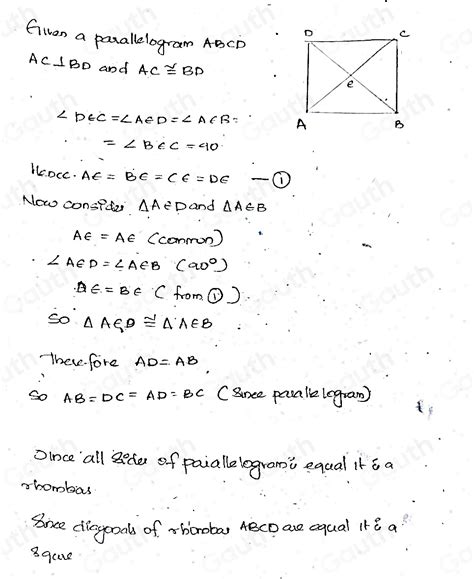 Given a parallelogram ABCD
AC⊥BD and AC≅BD
D C
e
A B
∠DEC=∠AED=∠AEB=
=∠BEC=90
Hence. AE= BE=CE=DE —①
Now consider ΔAED and ΔAEB
AE=AE (common)
∠AED=∠AEB (90°)
DE=BE (from ①).
SO ΔAED≅ΔAEB
Therefore AD=AB
SO AB=DC=AD=BC (Since parallelogram)
Since all sides of parallelogram is equal it is a
rhombas
Since diagonals of rhombas ABCD are equal it is a
square
Gauth